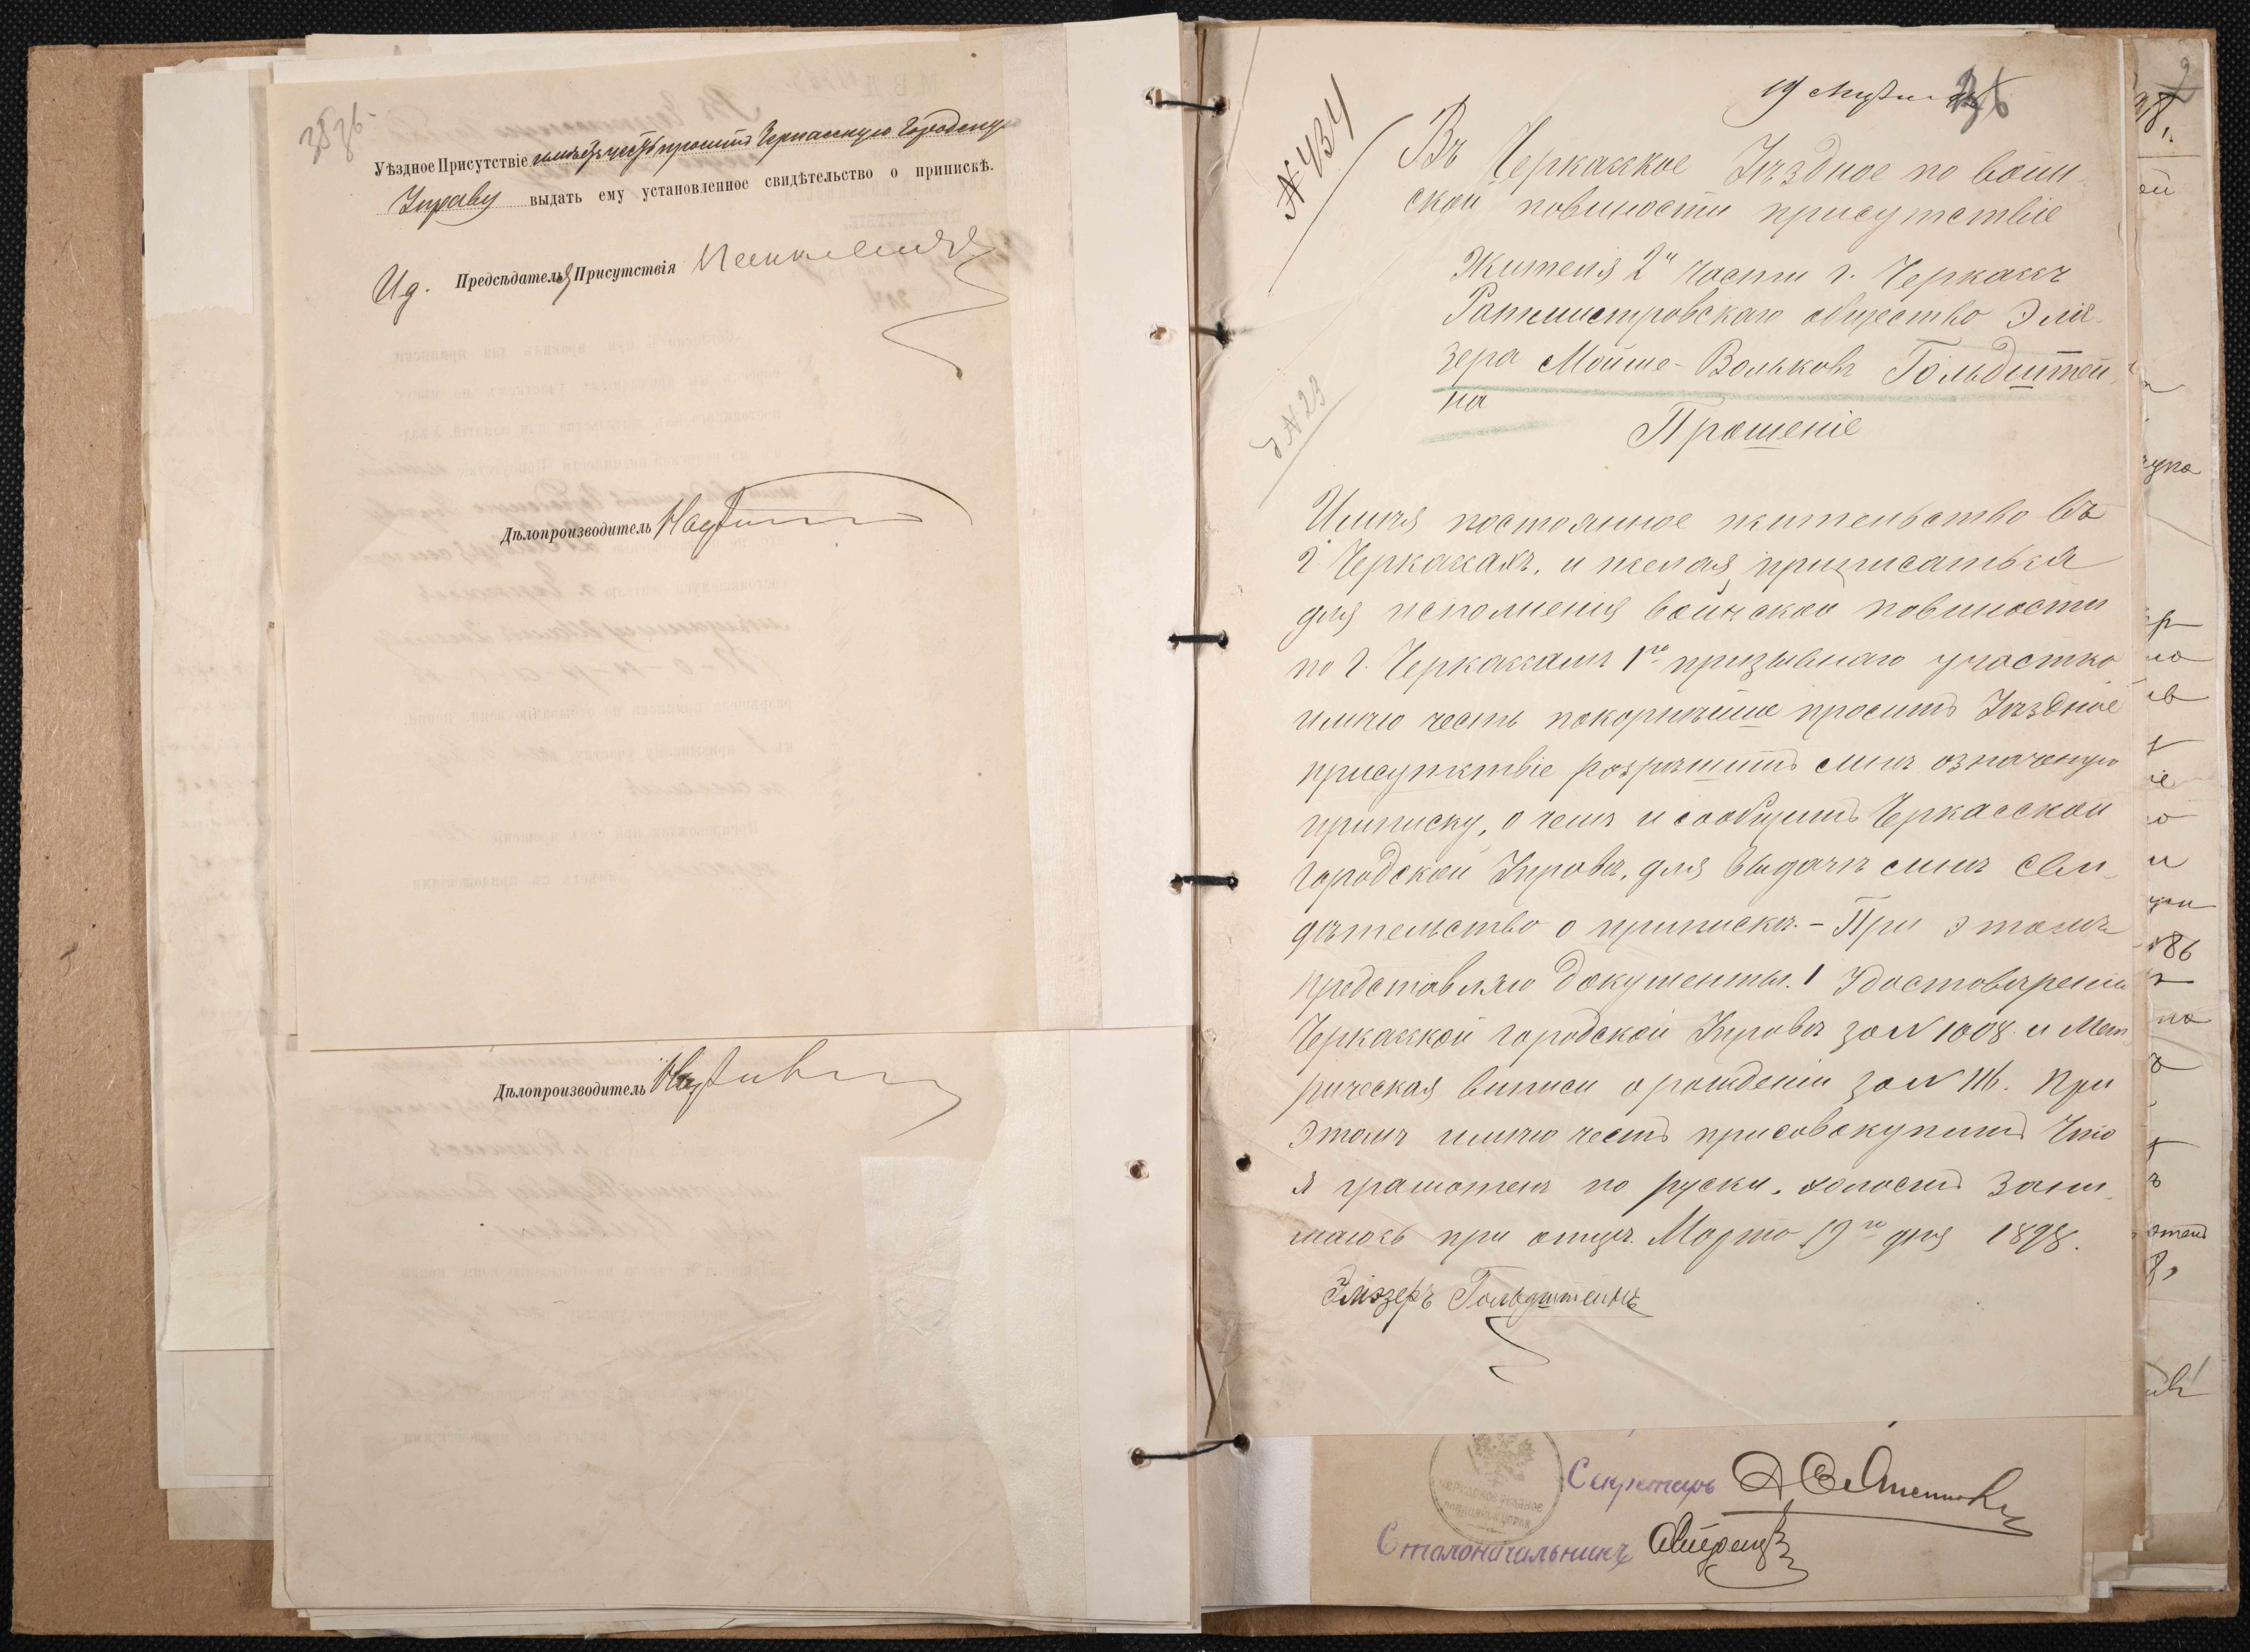 Уѣздное Присутствіе имѣетъ честь просить Черкасскую Городскую
Управу выдать ему установленное свидѣтельство о припискѣ.
И д. Предсѣдателя Присутствія
Дѣлопроизводитель
Дѣлопроизводитель
19 Марта
36
№ 434
Въ Черкасское Уѣздное по воин
ской повиности присутствіе
Жителя 2й части г. Черкассъ
Ратмистровскаго общество Эліе-
зера Мойше-Вольковъ Гольдштей
на
№ 23
Прошеніе
Имѣя постоянное жительство въ
г. Черкасахъ, и желая приписаться
для исполненія воинской повиности
по г. Черкассамъ 1го призывнаго участка
имѣю честь покорнѣйше просить Уѣздное
присутствіе розрѣшить мнѣ означеную
приписку, о чемъ и сообщить Черкасской
городской Управѣ, для выдачѣ мнѣ сви-
дѣтельство о припискѣ. – При этомъ
представляю документы. 1 Удостовѣреніе
Черкасской городской Управѣ за № 1008. и Мет
рическая выписи о рожденіи за № 116. При
этомъ имѣю честь присовокупить что
я грамотенъ по руски, холостъ зани-
маюсь при отцѣ. Марта 19го дня 1898.
Эліэзеръ Гольдштейнъ
Секретарь
Столоначальникъ